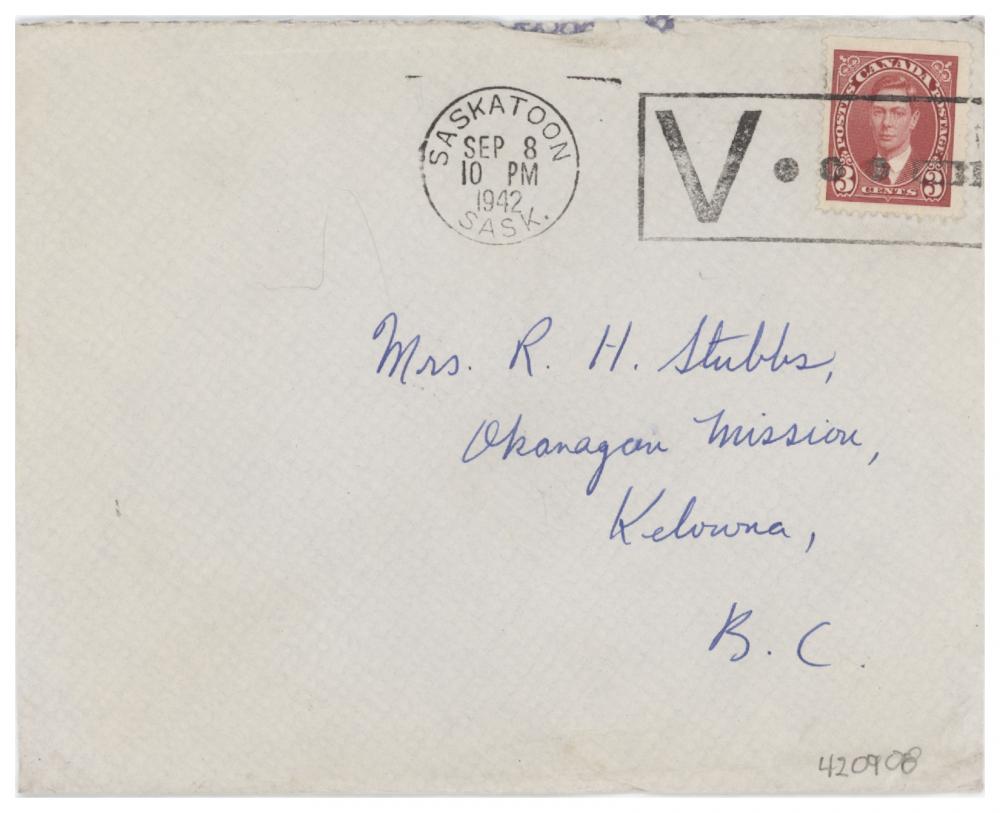 SASKATOON
SEP 8
10 PM
1942
SASK.
V...
POSTES CANADA POSTAGE
3 CENTS 3
Mrs. R. H. Stubbs,
Okanagan Mission,
Kelowna,
B. C.
420908